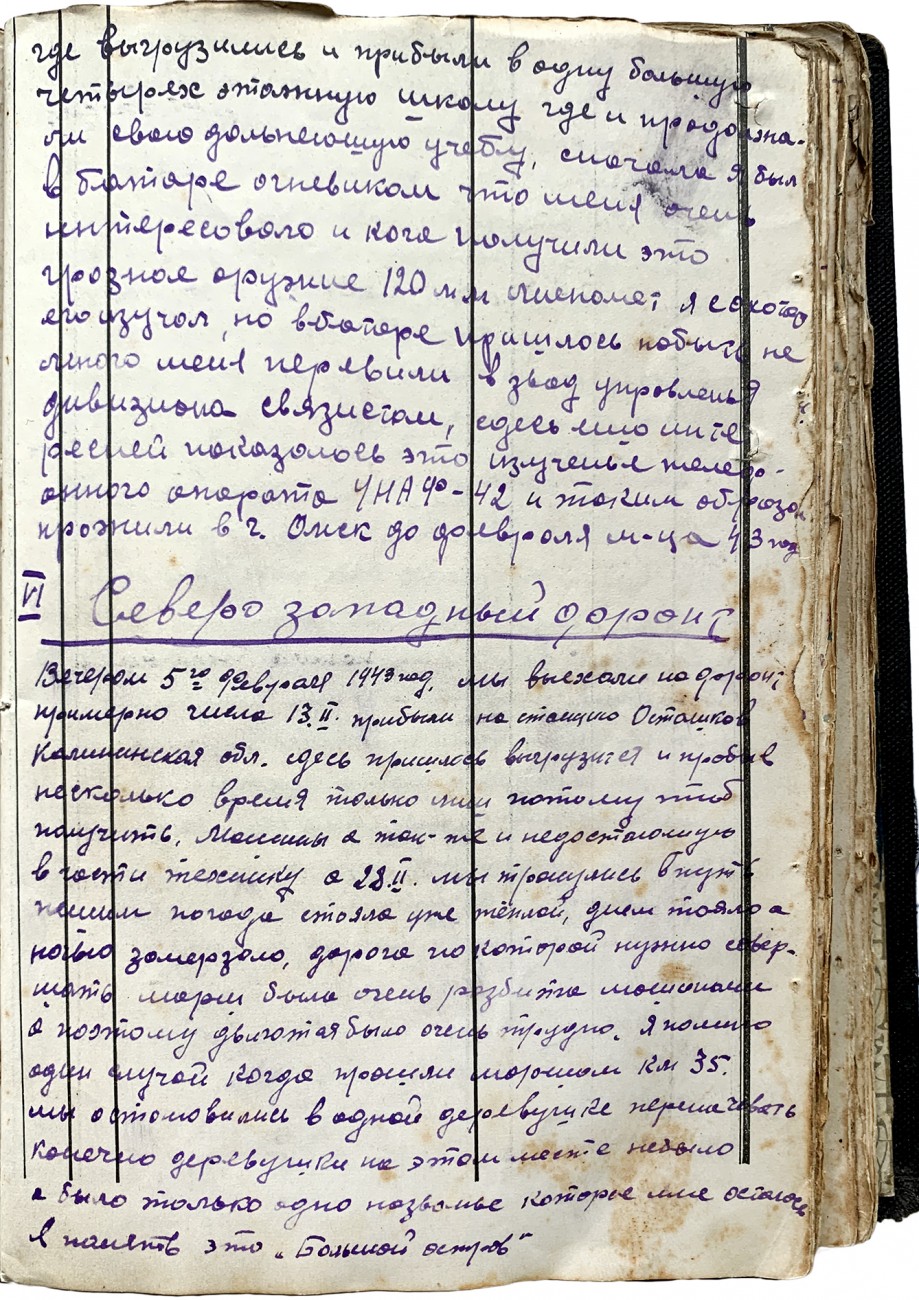 где выгрузились и прибыли в одну большую
четырех этажную школу где и продолжа-
ли свою дальнейшую учебу, сначала я был
в батаре огневиком что меня очень
интересовало и кога получили это
грозное оружие 120 мм миномет, я с охотой
его изучал, но в батаре пришлось побыть не
много меня перевили в звод управленья
дивизиона связистом, сдесь мно инте
ресней показалось это изученье телефо-
нного апарата УНАФ-42 и таким образом
прожили в г. Омск до февроля м-ца 43 год
VI Северо западный фронт
Вечером 5го февраля 1943 год, мы выехали на фронт
примерно числа 13.II. прибыли на станцию Осташков
Калининская обл. сдесь пришлось выгрузится и пробыв
несколько время только лиш потому чтоб
получить, Машины а так-же и недостающую
в части технику а 28.II. мы тронулись в путь
пешим погода стояла уже тёплой, днем таяло а
ночью замерзало, дорога по которой нужно совер-
шать марш была очень разбита машинами
а поэтому двигатся было очень трудно. Я помню
один случай когда прошли маршом км 35.
мы остоновились в одной деревушке переначевать
конечно деревушки на этом месте небыло
а было только одно названье которое мне осталось
в память это „Большой остров“